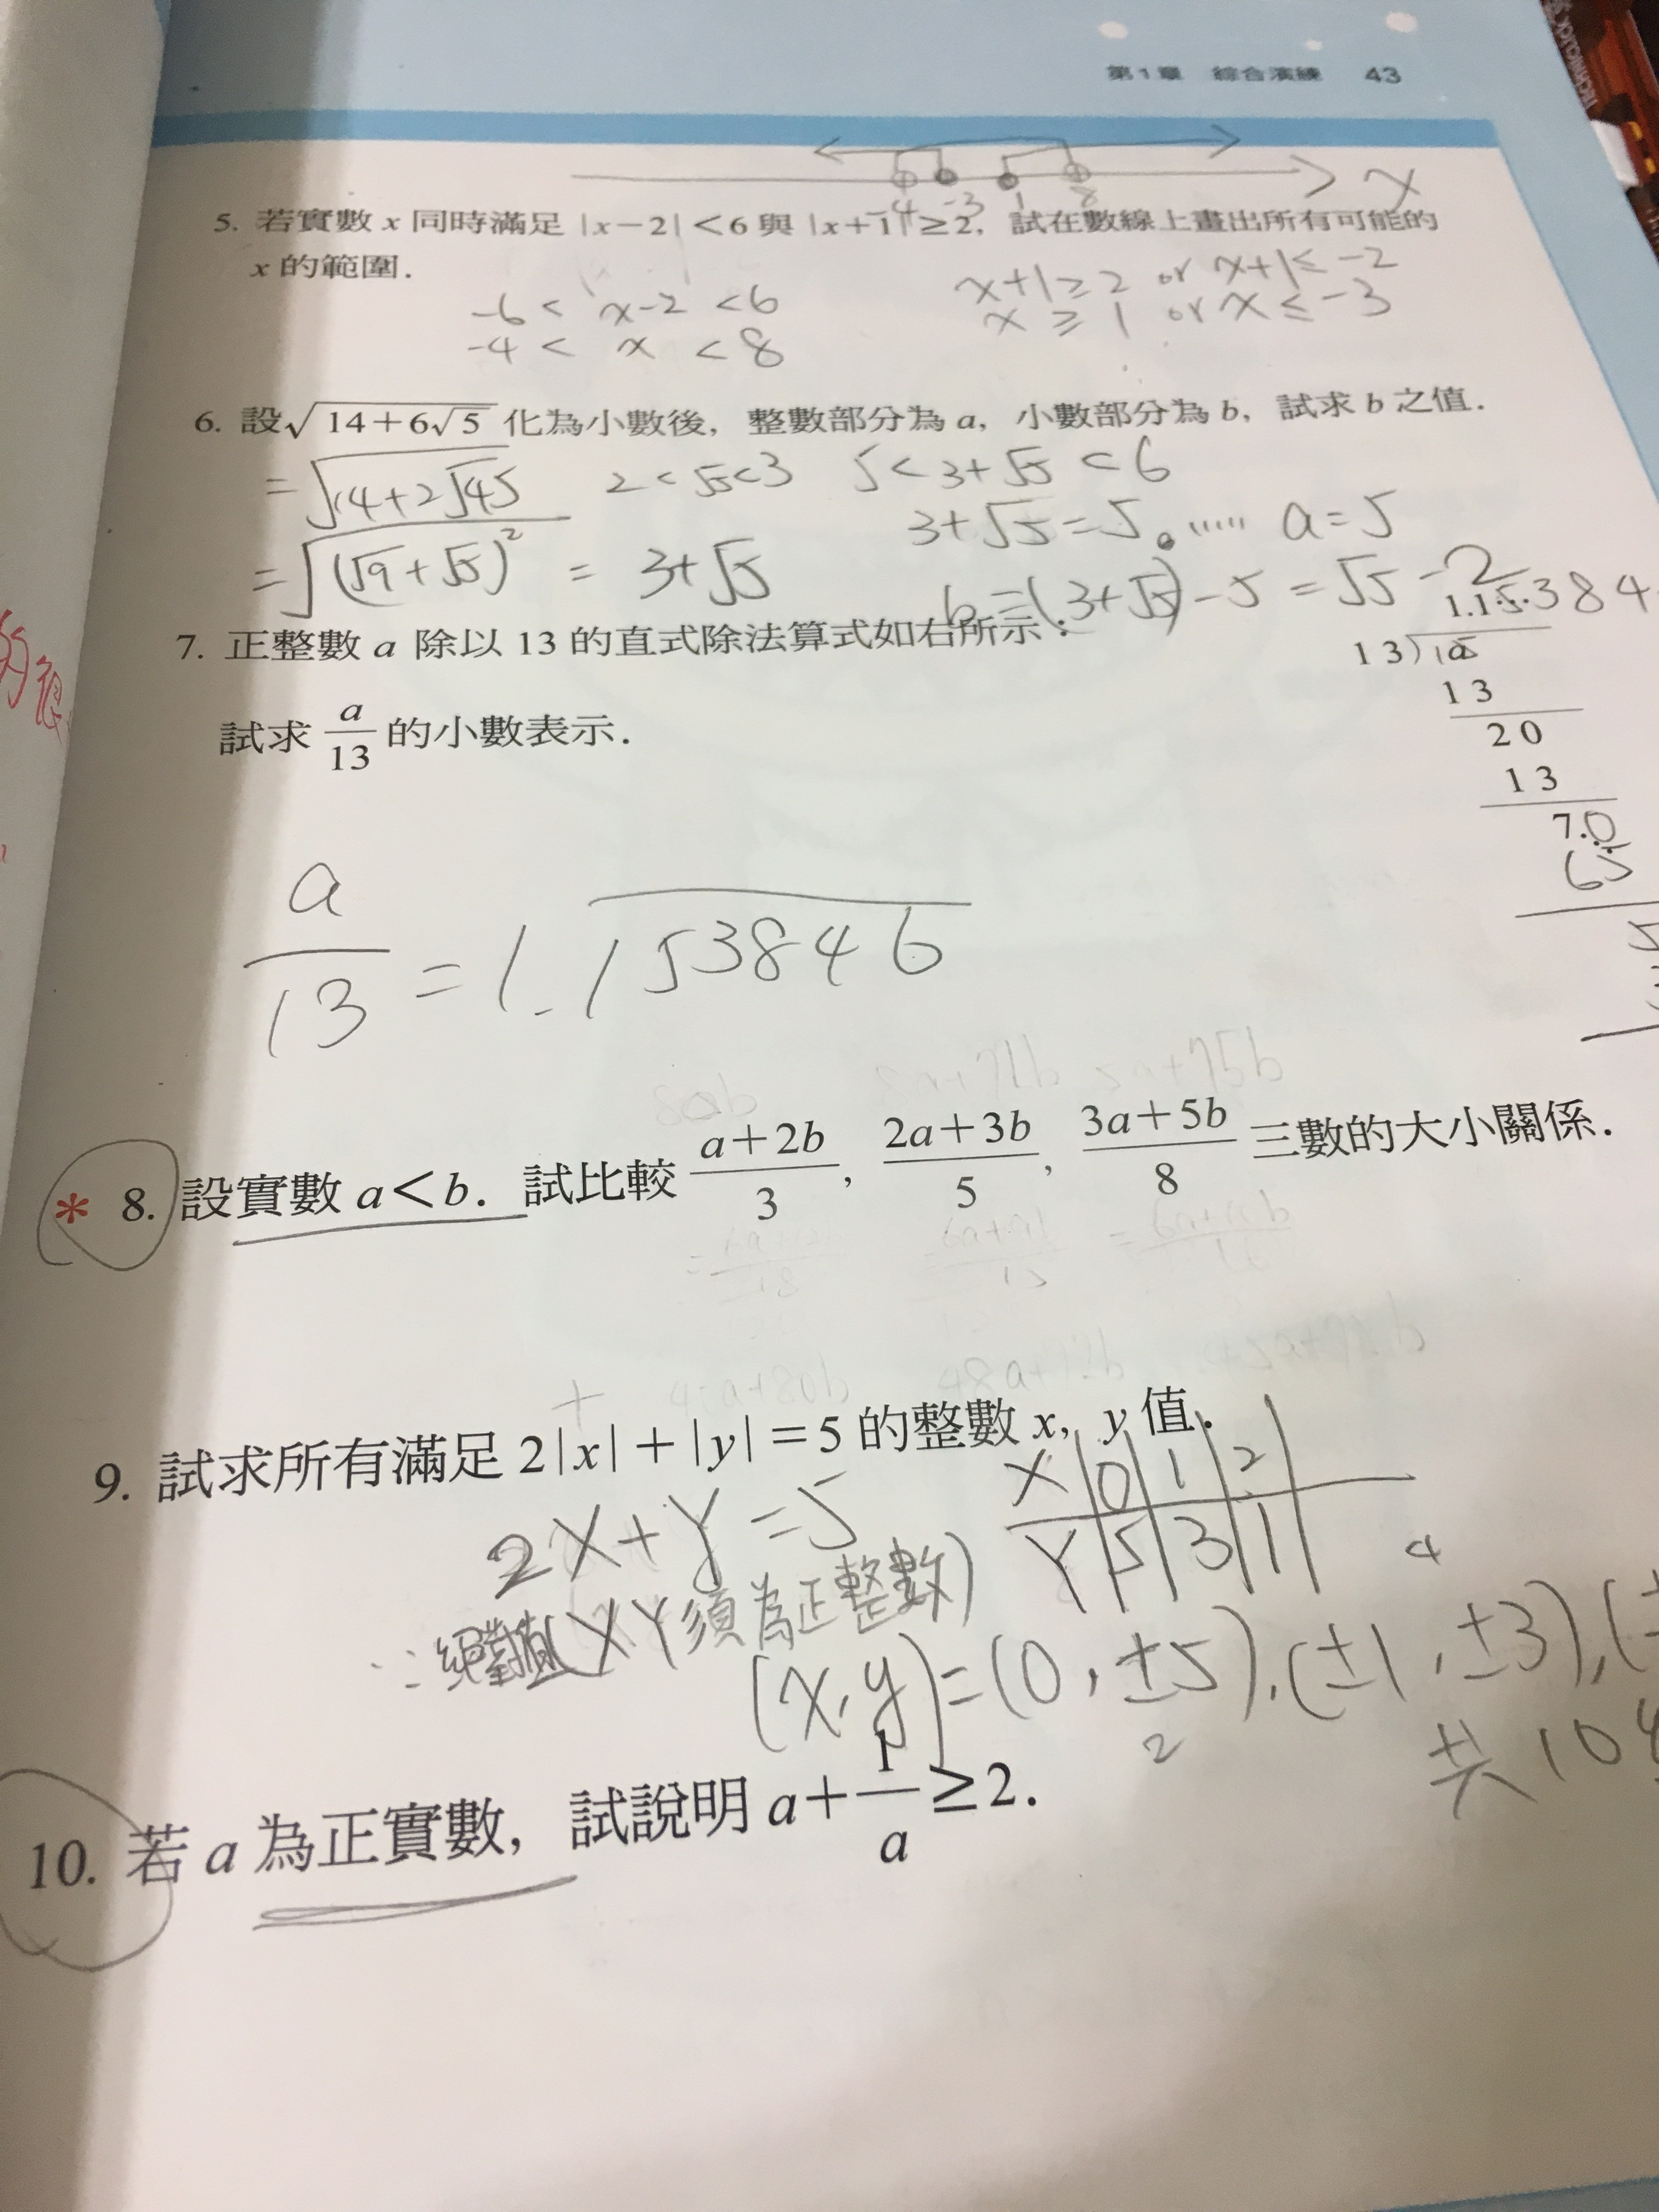 第1章 綜合演練 43
x
-4 -3 1 8
5. 若實數 x 同時滿足 |x-2|<6 與 |x+1|≥2, 試在數線上畫出所有可能的
x 的範圍.
-6 < x-2 <6
x+1≥2 or x+1≤-2
-4 < x <8
x≥1 or x≤-3
6. 設√(14+6√5) 化為小數後, 整數部分為 a, 小數部分為 b, 試求 b 之值.
=√(14+2√45) 2<√5<3 5<3+√5<6
3+√5=5. ..... a=5
=√((√9+√5)²) = 3+√5
b=(3+√5)-5=√5-2
7. 正整數 a 除以 13 的直式除法算式如右所示:
1.15384
13)a
13
20
13
7.0
65
5
試求 a/13 的小數表示.
a/13=1.153846
80b
5a+75b
* 8. 設實數 a<b. 試比較 (a+2b)/3, (2a+3b)/5, (3a+5b)/8 三數的大小關係.
9. 試求所有滿足 2|x|+|y|=5 的整數 x, y 值.
2X+Y=5
X 0 1 2
Y 5 3 1
4
∵絕對值(X Y須為正整數)
(x,y)=(0,±5),(±1,±3),(±
2
共10
10. 若 a 為正實數, 試說明 a+1/a≥2.